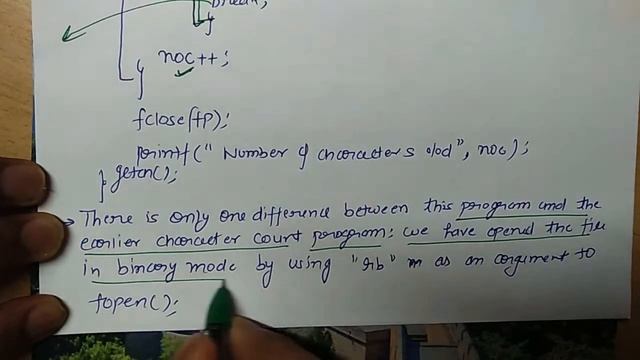 break;
}
noc++;
}
fclose(fp);
printf("Number of characters %d", noc);
getch();
}
→ There is only one difference between this program and the
earlier character count program: we have opened the file
in binary mode by using "rb" as an argument to
fopen();